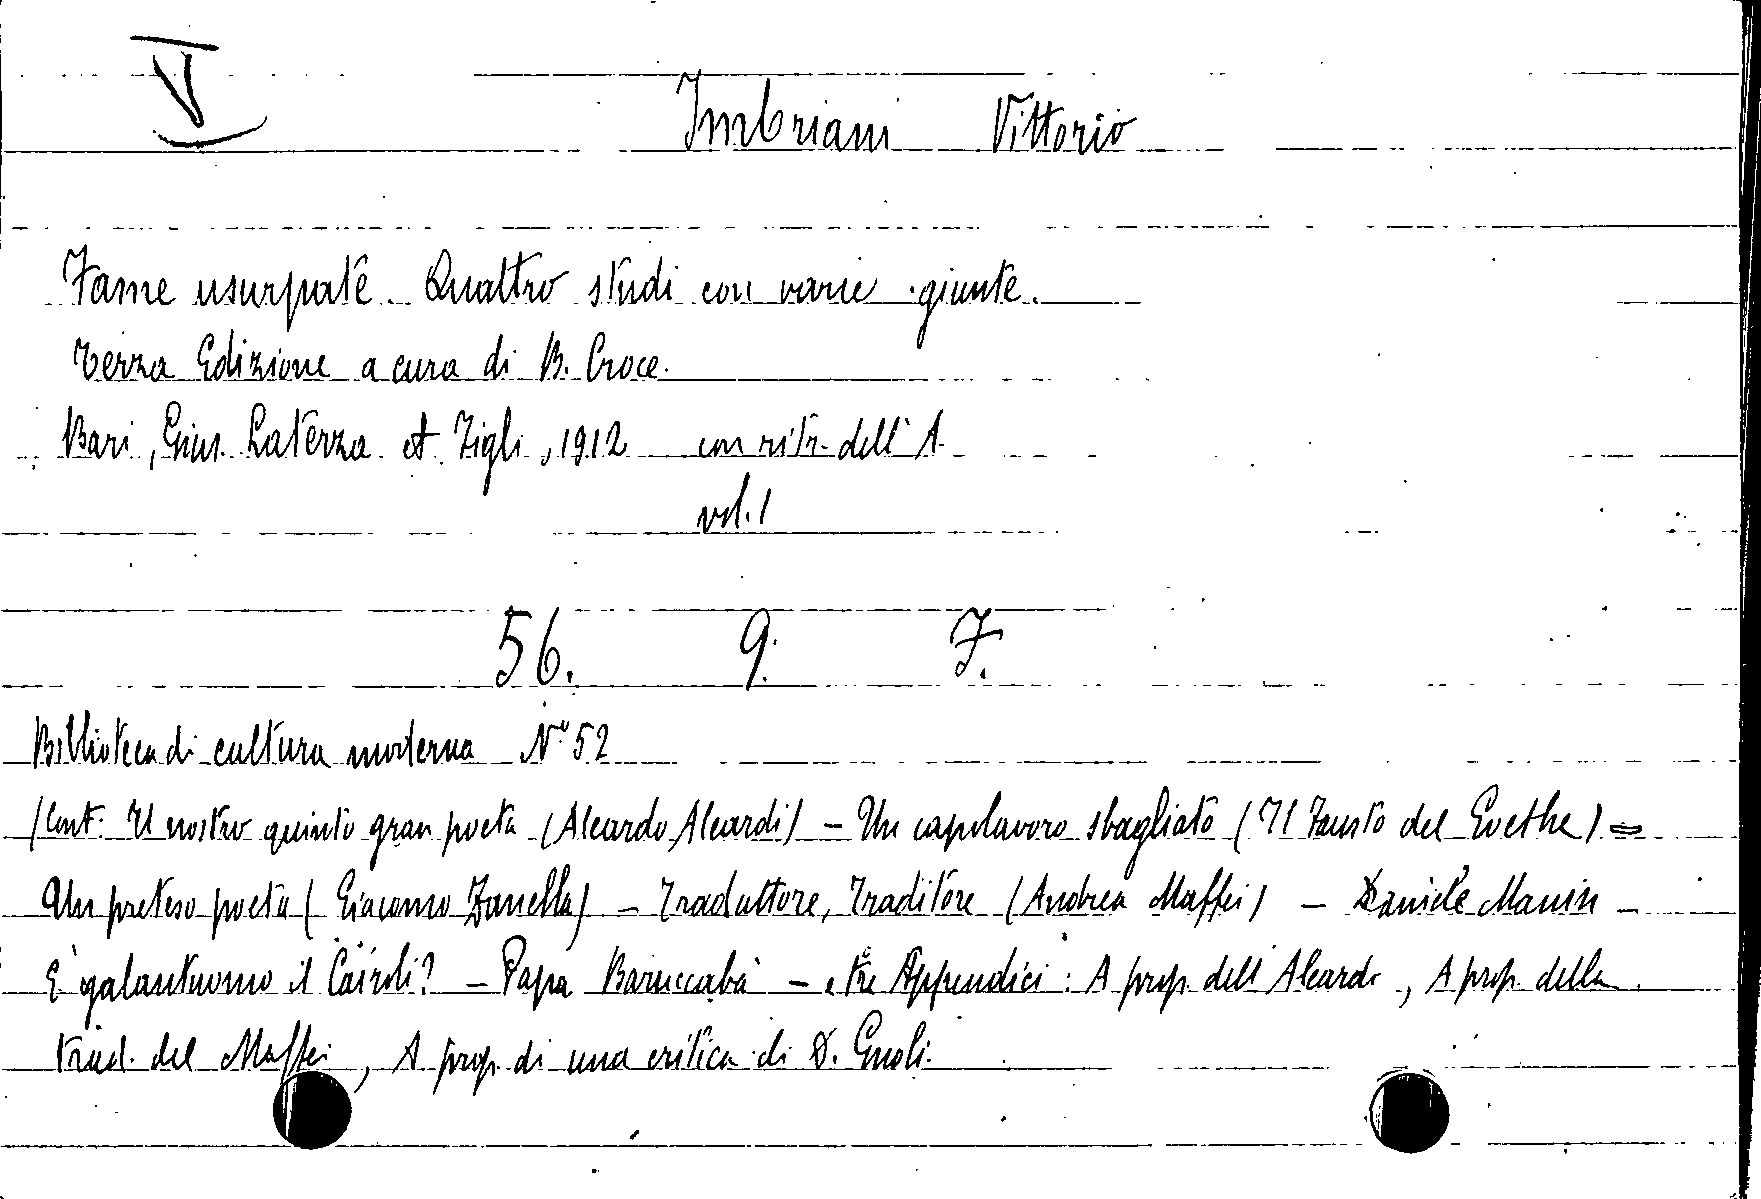 V
Imbriani Vittorio
Fame usurpate. Quattro studi con varie giunte.
Terza Edizione a cura di B. Croce.
Bari, Gius. Laterza et Figli, 1912 con ritr. dell'A.
vol. 1
56. 9. F.
Biblioteca di cultura moderna N° 52
(Cont: Il nostro quinto gran poeta (Aleardo Aleardi) - Un capolavoro sbagliato (Il Fausto del Goethe) =
Un preteso poeta (Giacomo Zanella) - Traduttore, Traditore (Andrea Maffei) - Daniele Manin -
È galantuomo il Cairoli? - Papa Baruccabà - tre Appendici: A prop. dell'Aleardi, A prop. della
trad. del Maffei, A prop. di una critica di D. Gnoli.